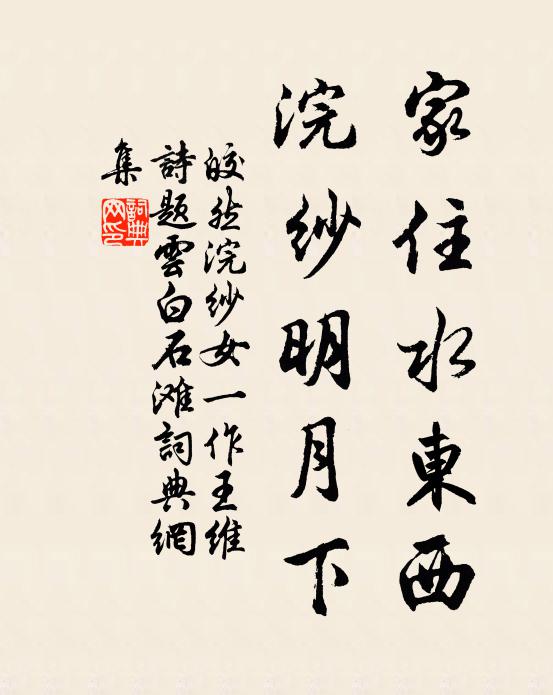 家住水東西
浣紗明月下
皎然浣紗女一作王維
詩題雲白石滩詞典網
集
詞典網印